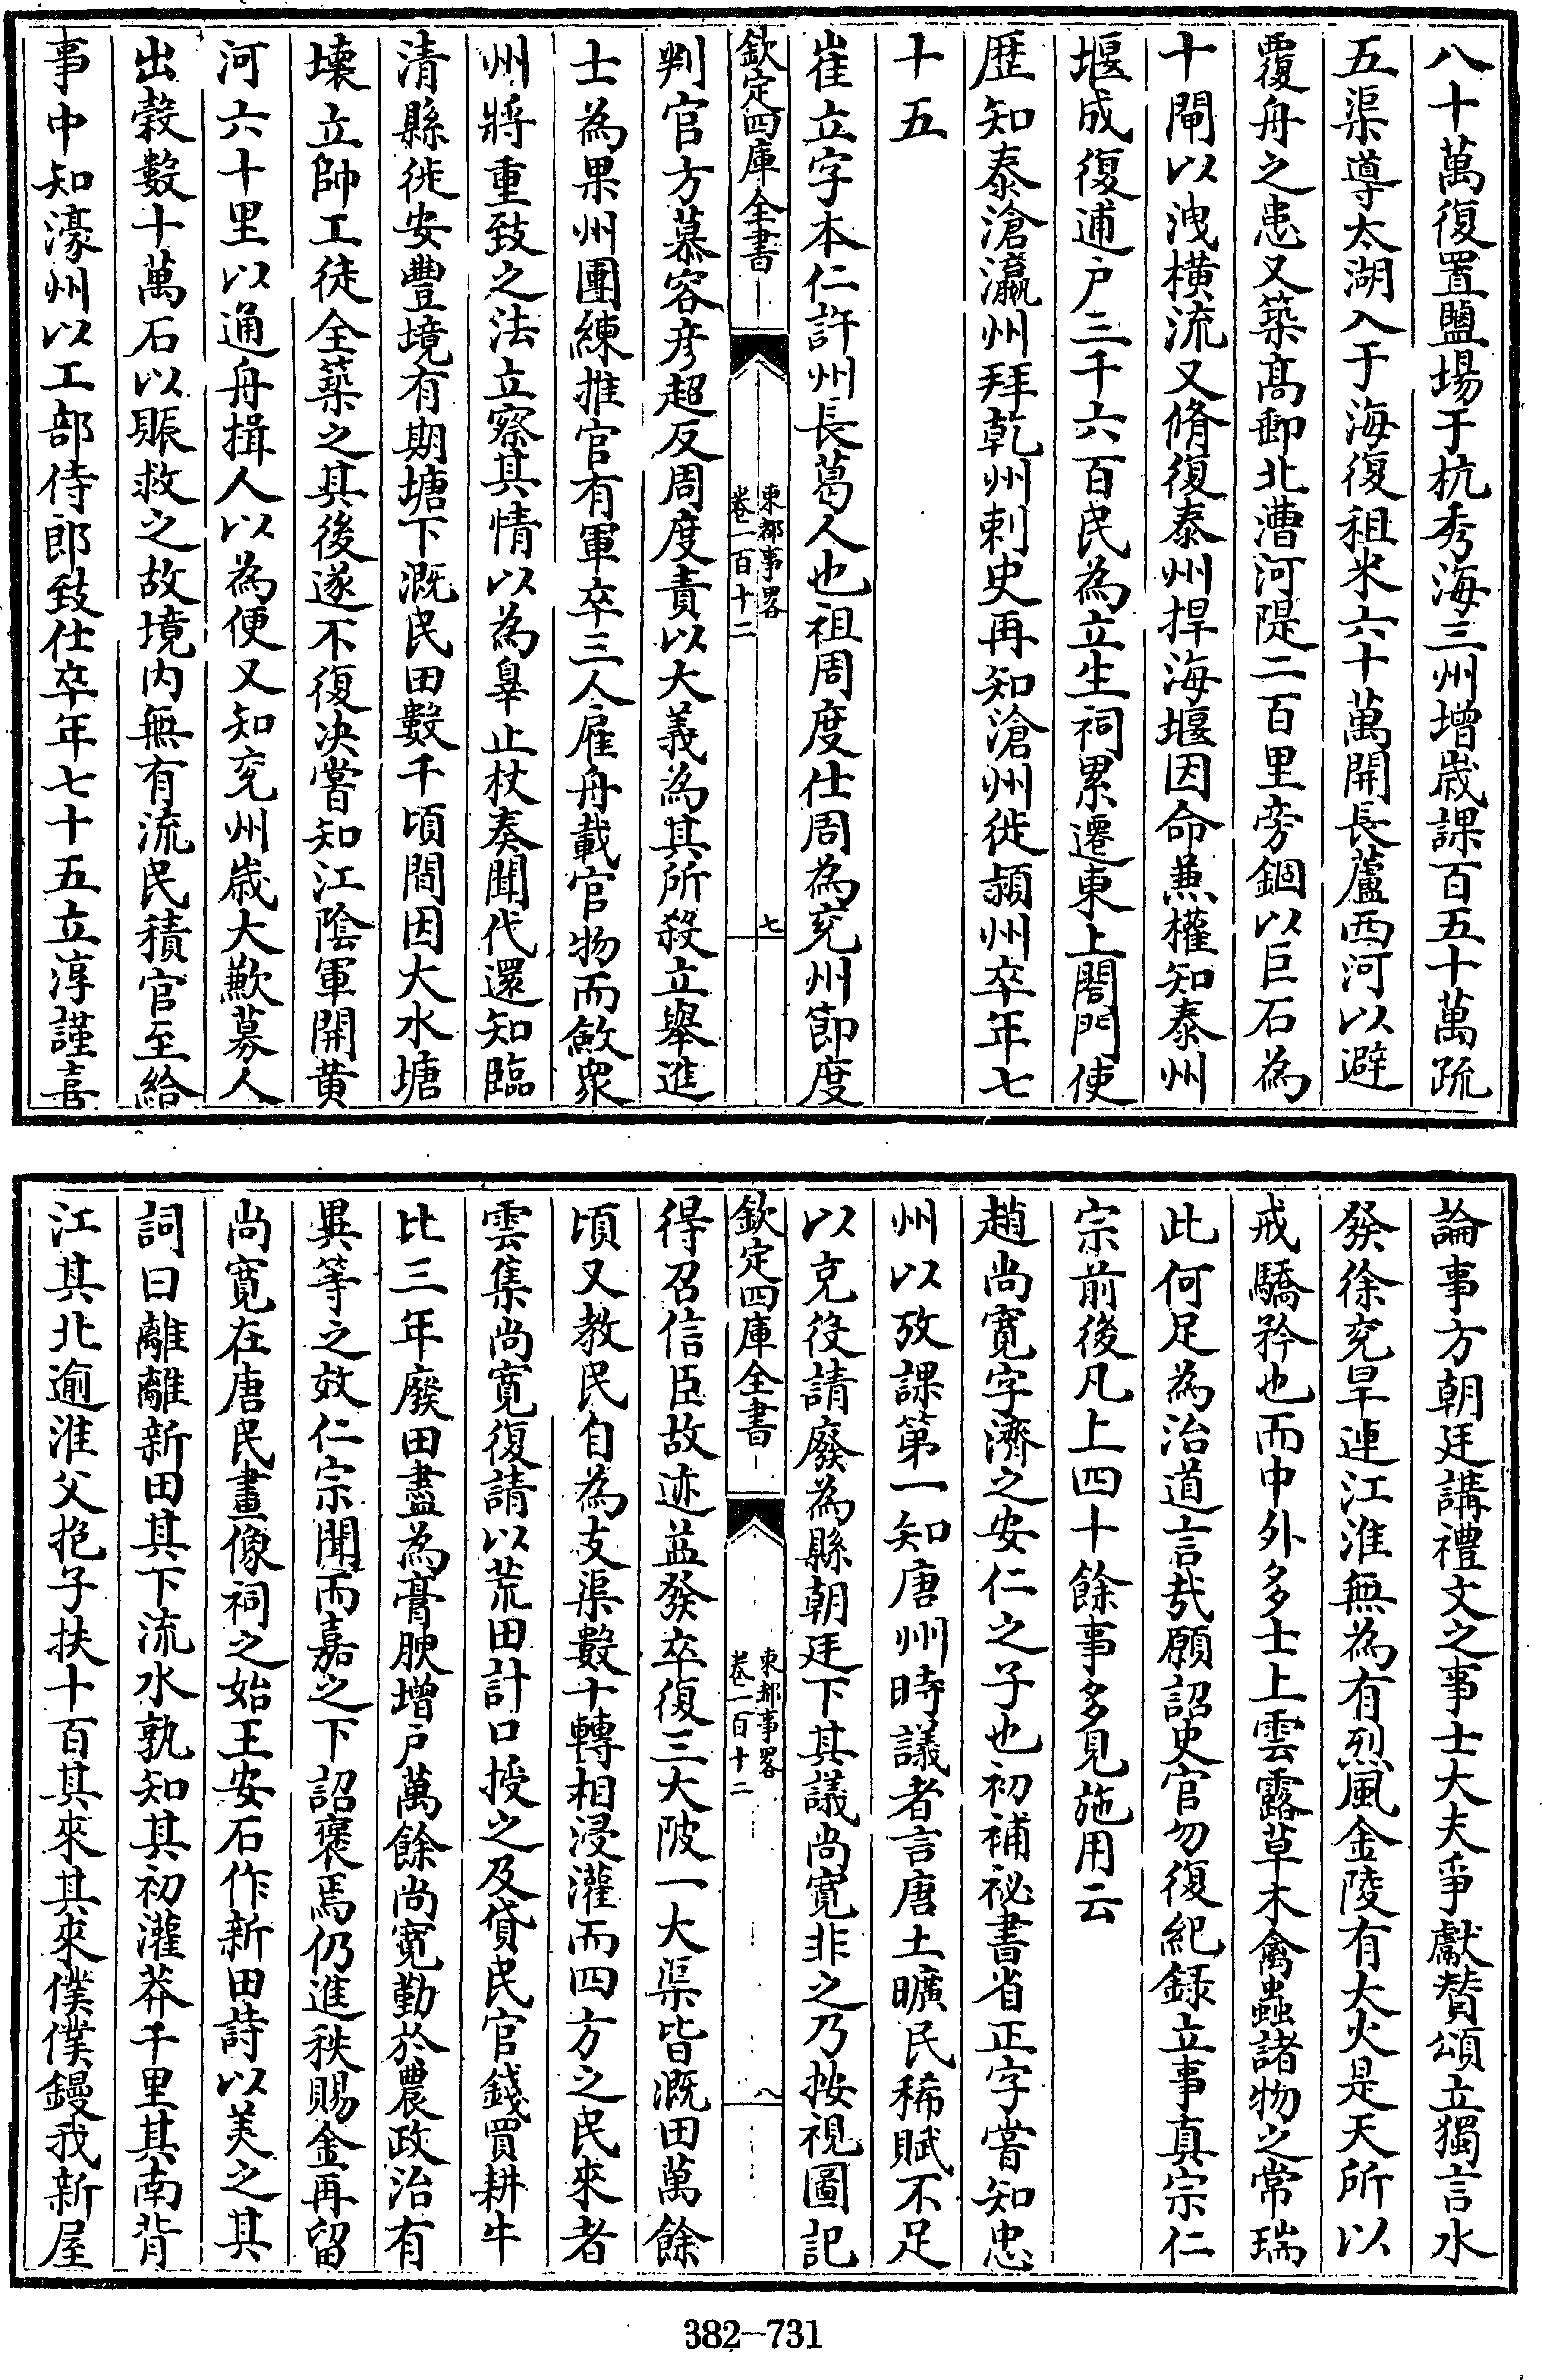 八十萬復置鹽場于杭秀海三州增歲課百五十萬疏
五渠導太湖入于海復租米六十萬開長蘆西河以避
覆舟之患又築高郵北漕河隄二百里旁錮以巨石為
十閘以洩橫流又脩復泰州捍海堰因命兼權知泰州
堰成復逋户三千六百民為立生祠累遷東上閤門使
歴知泰滄瀛州拜乾州刺史再知滄州徙潁州卒年七
十五
崔立字本仁許州長葛人也祖周度仕周為兖州節度
欽定四庫全書
東都事畧
卷一百十二
七
判官方慕容彦超反周度責以大義為其所殺立舉進
士為果州團練推官有軍卒三人雇舟載官物而斂衆
州將重致之法立察其情以為辠止杖奏聞代還知臨
清縣徙安豐境有期塘下溉民田數千頃間因大水塘
壊立帥工徒全築之其後遂不復决嘗知江陰軍開黄
河六十里以通舟揖人以為便又知兖州歲大歉募人
出穀數十萬石以賑救之故境内無有流民積官至給
事中知濠州以工部侍郎致仕卒年七十五立淳謹喜
論事方朝廷講禮文之事士大夫爭獻賛頌立獨言水
發徐兖旱連江淮無為有烈風金陵有大火是天所以
戒驕矜也而中外多士上雲露草木禽蟲諸物之常瑞
此何足為治道言哉願詔史官勿復紀録立事真宗仁
宗前後凡上四十餘事多見施用云
趙尚寛字濟之安仁之子也初補祕書省正字嘗知忠
州以攷課第一知唐州時議者言唐土曠民稀賦不足
以克役請廢為縣朝廷下其議尚寛非之乃按視圖記
欽定四庫全書
東都事畧
卷一百十二
八
得召信臣故迹益發卒復三大陂一大渠皆溉田萬餘
頃又教民自為支渠數十轉相浸灌而四方之民來者
雲集尚寛復請以荒田計口授之及貸民官錢買耕牛
比三年廢田盡為膏腴增户萬餘尚寛勤於農政治有
異等之效仁宗聞而嘉之下詔褒焉仍進秩賜金再留
尚寛在唐民畫像祠之始王安石作新田詩以美之其
詞曰離離新田其下流水孰知其初灌莽千里其南背
江其北逾淮父抱子扶十百其來其來僕僕鏝我新屋
382-731